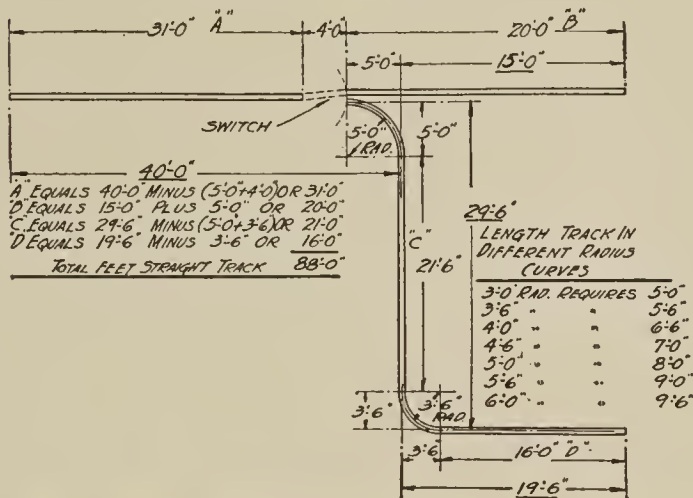 31'-0" "A"
4'-0"
20'-0" "B"
5'-0"
15'-0"
SWITCH
5'-0"
RAD.
5'-0"
40'-0"
"A" EQUALS 40'-0" MINUS (5'-0"+4'-0") OR 31'-0"
"B" EQUALS 15'-0" PLUS 5'-0" OR 20'-0"
"C" EQUALS 29'-6" MINUS (5'-0"+3'-6") OR 21'-0"
"D" EQUALS 19'-6" MINUS 3'-6" OR 16'-0"
TOTAL FEET STRAIGHT TRACK 88'-0"
"C"
21'-6"
29'-6"
LENGTH TRACK IN
DIFFERENT RADIUS
CURVES
3'-0" RAD. REQUIRES 5'-0"
3'-6" " " 5'-6"
4'-0" " " 6'-6"
4'-6" " " 7'-0"
5'-0" " " 8'-0"
5'-6" " " 9'-0"
6'-0" " " 9'-6"
3'-6"
3'-6"
RAD.
3'-6"
16'-0" "D"
19'-6"